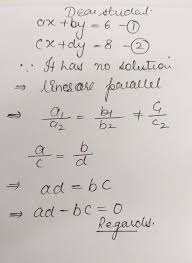 Dear student.
ax + by = 6 - ①
cx + dy = 8 - ②
∵ It has no solution
⇒ lines are parallel
⇒ a₁/a₂ = b₁/b₂ ≠ c₁/c₂
a/c = b/d
⇒ ad = bc
⇒ ad - bc = 0
Regards.